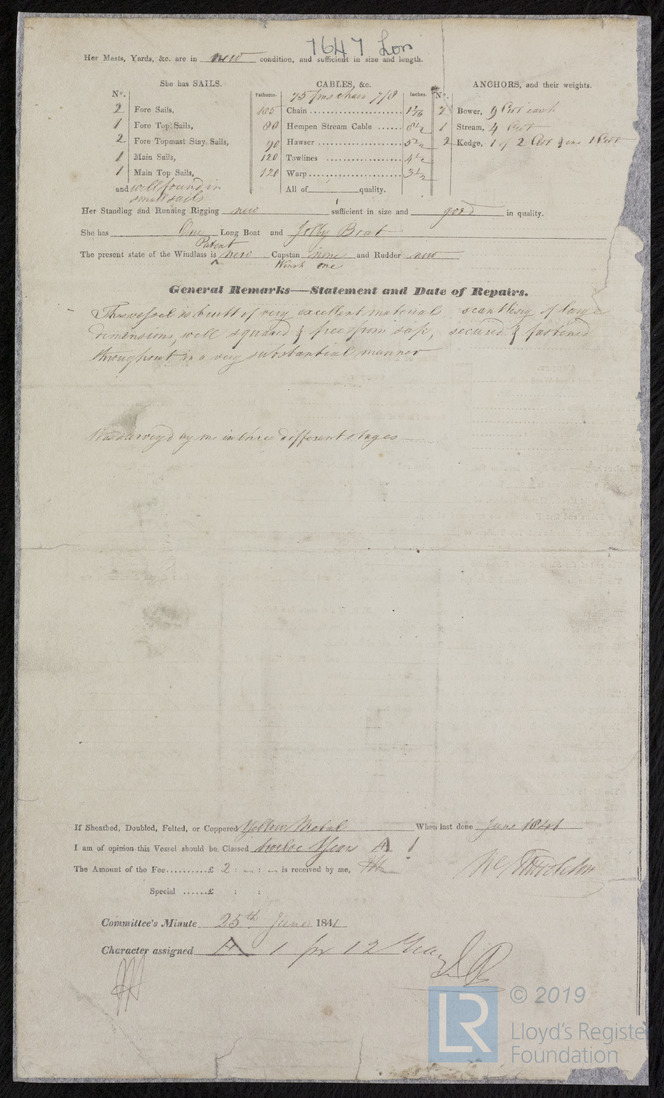 7647 Lon
Her Masts, Yards, &c. are in new condition, and sufficient in size and length.
She has SAILS. CABLES, &c. ANCHORS, and their weights.
N°. Fathoms. 75 fms chain 7/8 Inches. N°.
2 Fore Sails, 105 Chain 1 1/16 2 Bower, 9 Cwt each
1 Fore Top Sails, 80 Hempen Stream Cable 8 1/2 1 Stream, 4 Cwt
2 Fore Topmast Stay Sails, 90 Hawser 5 1/2 2 Kedge, 1 of 2 Cwt & one 1 Cwt
1 Main Sails, 120 Towlines 4 1/2
1 Main Top Sails, 120 Warp 3 1/2
and well found in All of quality.
small sails
Her Standing and Running Rigging new sufficient in size and good in quality.
She has One Long Boat and Jolly Boat
Patent
The present state of the Windlass is new Capstan none and Rudder new
Winch one
General Remarks—Statement and Date of Repairs.
This vessel is built of very excellent material scantling of large
dimensions, well squared & free from sap, secured & fastened
throughout in a very substantial manner
Was surveyd by me in three different stages
If Sheathed, Doubled, Felted, or Coppered Yellow Metal When last done June 1841
I am of opinion this Vessel should be Classed twelve Years A 1
The Amount of the Fee £ 2 : — : — is received by me,
Special £ : :
Committee's Minute 25th June 1841
Character assigned A 1 for 12 Years
LR © 2019
Lloyd's Register
Foundation